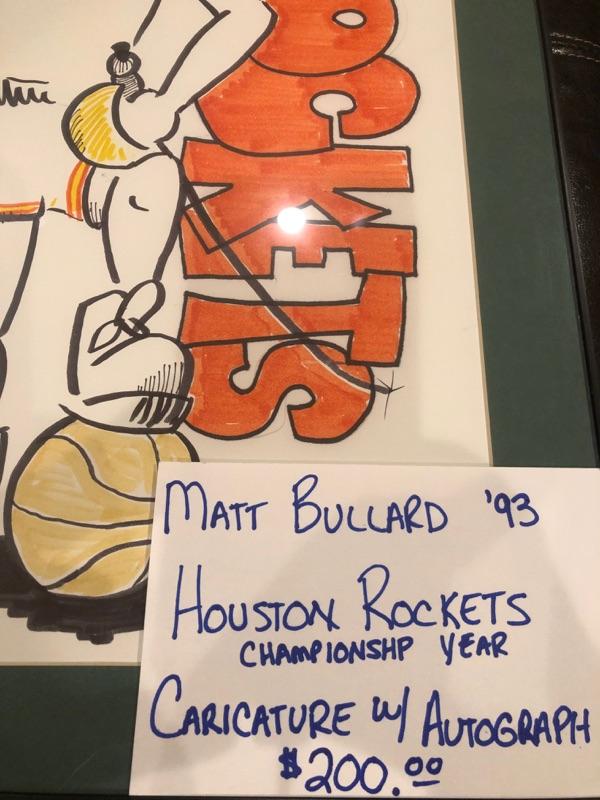 OCKETS
MATT BULLARD '93
HOUSTON ROCKETS
CHAMPIONSHP YEAR
CARICATURE W/ AUTOGRAPH
$200.00